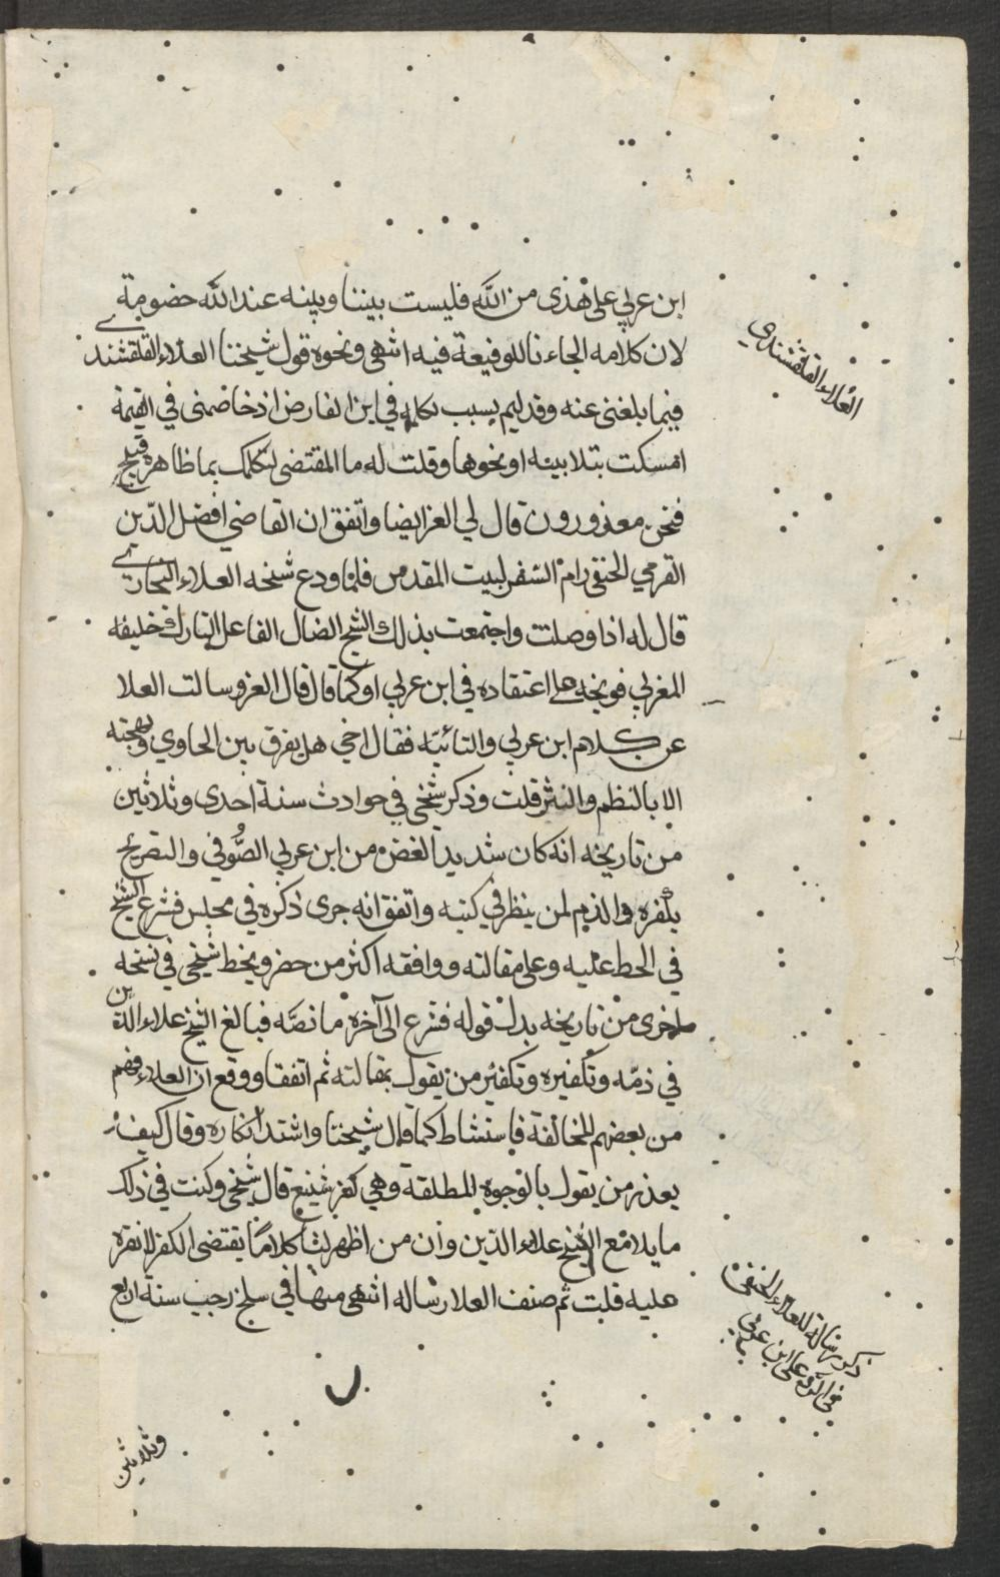 ابن عربي على هذى من الله فليست بيننا وبينه عند الله خصومة
لان كلامه الجاءنا للوقيعة فيه انتهى ونحوه قول شيخنا العلاء القلقشندي
فيما بلغني عنه وقد ليم بسبب تكلمه في ابن الفارض اذ خاصمني في القيمة
امسكت بتلابيبه او نحوها وقلت له ما المقتضى لتكلمك بما ظاهره قبيح
فنحن معذورون قال لي العز ايضا واتفق ان القاضي افضل الدين
القرمي الحنفي رام السفر لبيت المقدس فلما ودع شيخه العلاء البخاري
قال له اذا وصلت واجتمعت بذلك الشيخ الضال الفاعل التارك خليفة
المغربي فوبخه على اعتقاده في ابن عربي او كما قال قال العز وسالت العلا
عن كلام ابن عربي والتائية فقال اخي هل يفرق بين الحاوي وبهجته
الا بالنظم والنثر قلت وذكر شيخي في حوادث سنة احدى وثلاثين
من تاريخه انه كان شديد الغض من ابن عربي الصوفي والتصريح
بكفره والذم لمن ينظر في كتبه واتفق انه جرى ذكره في مجلس فشرع الشيخ
في الحط عليه وعلى مقالته ووافقه اكثر من حضر وبخط شيخي في نسخه
اخرى من تاريخه بدل قوله فشرع الى آخره ما نصه فبالغ الشيخ علاء الدين
في ذمه وتكفيره وتكفير من يقول بمقالته ثم اتفقا ووقع ان العلاء فهم
من بعضهم المخالفة فاستشاط كما قال شيخنا واشتد انكاره وقال كيف
يعذر من يقول بالوجود المطلقة وهي كفر شنيع قال شيخي وكنت في ذلك
مايلا مع الشيخ علاء الدين وان من اظهر لنا كلاما يقتضى الكفر لا نقره
عليه قلت ثم صنف العلا رساله انتهى منها في سلخ رجب سنة اربع
وثلاثين
العلاء القلقشندي
ذكر رسالة للعلاء الحنفي
في الرد على ابن عربي